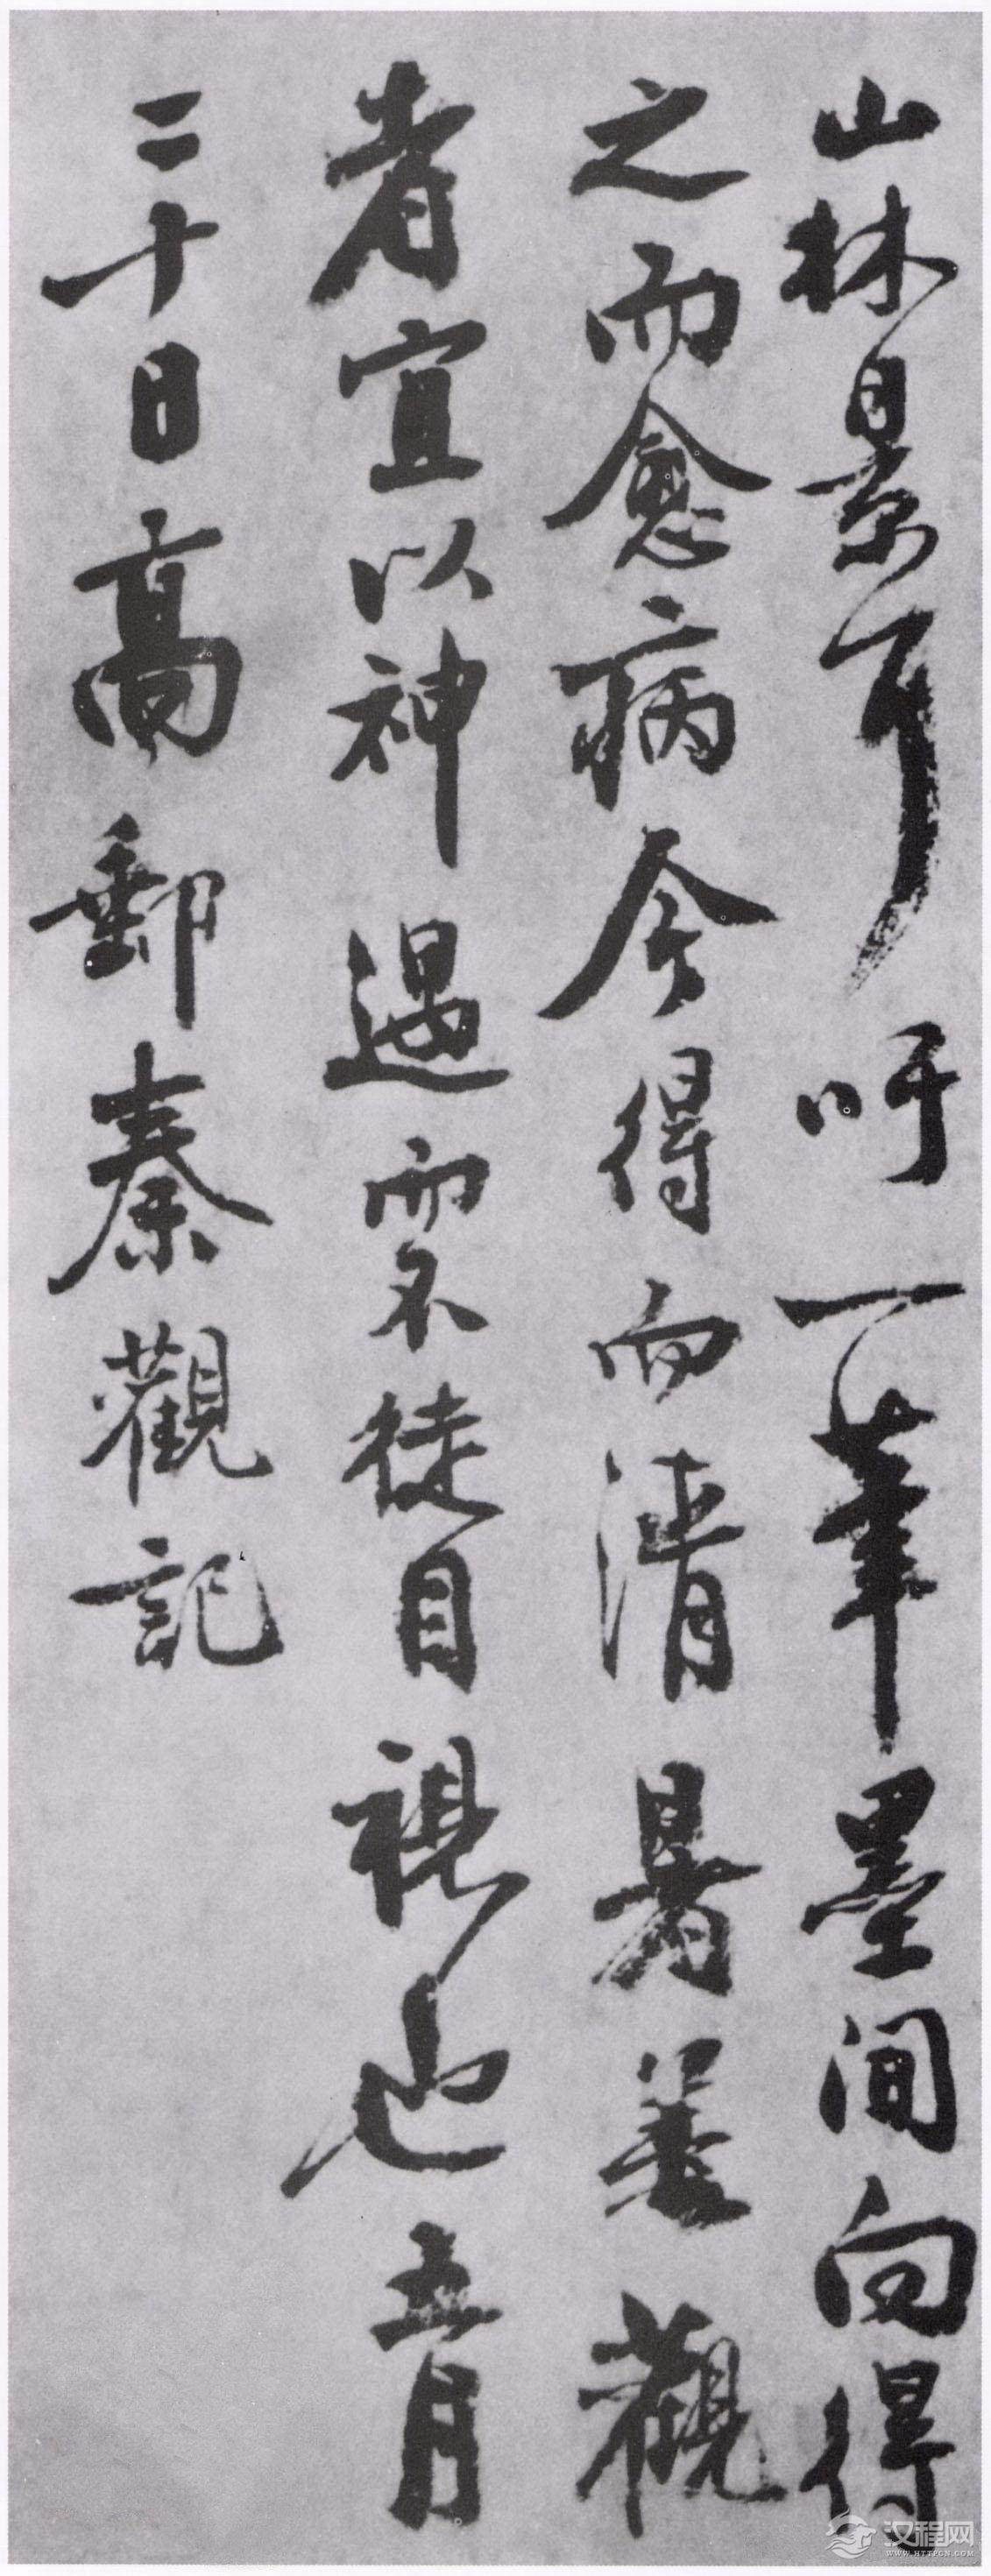 山林景耳吁一筆墨間向得
之而愈病今得而清暑善觀
者宜以神遇而不徒目視也五月
二十日高郵秦觀記
汉程网
WWW.HTTPCN.COM